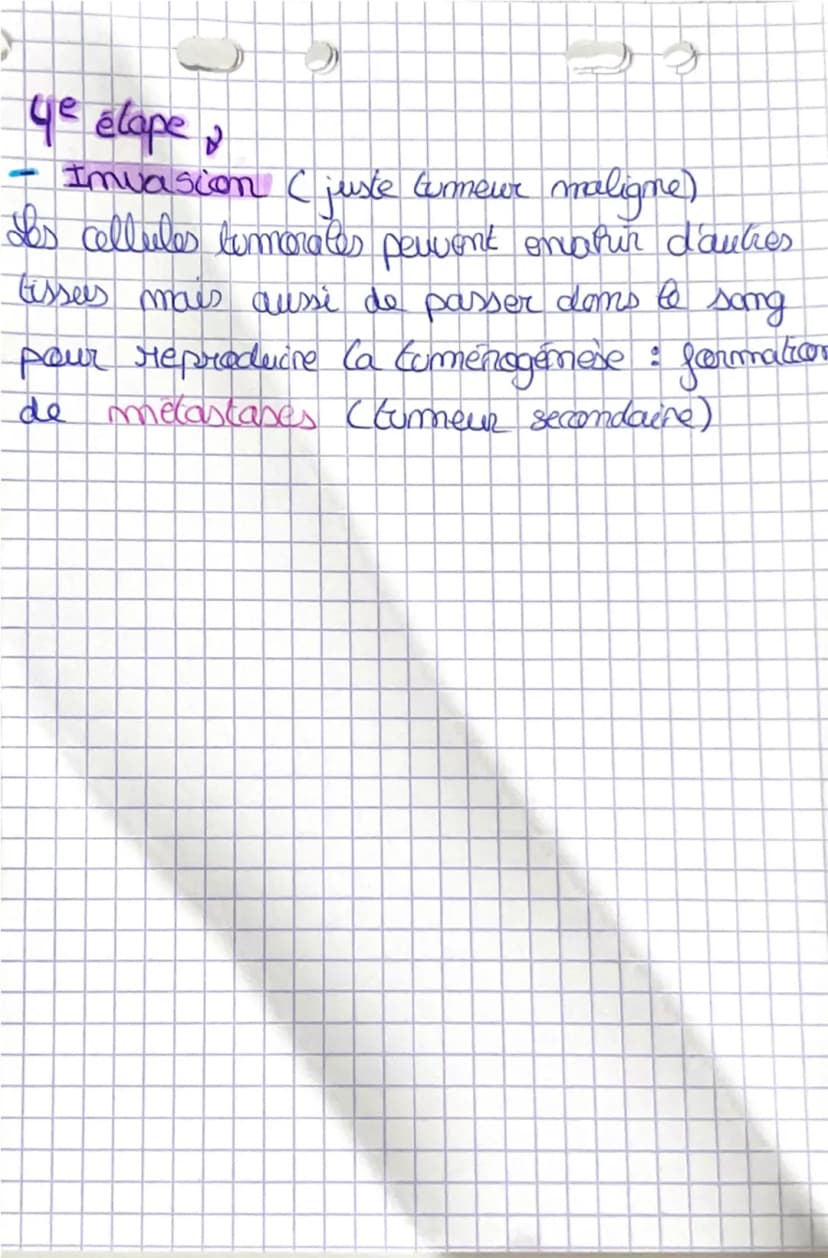 4e étape
- Invasion (juste tumeur maligne)
Les cellules tumorales peuvent envahir d'autres
tissus mais aussi de passer dans le sang
pour reproduire la tumérogénèse : formation
de métastases (tumeur secondaire)